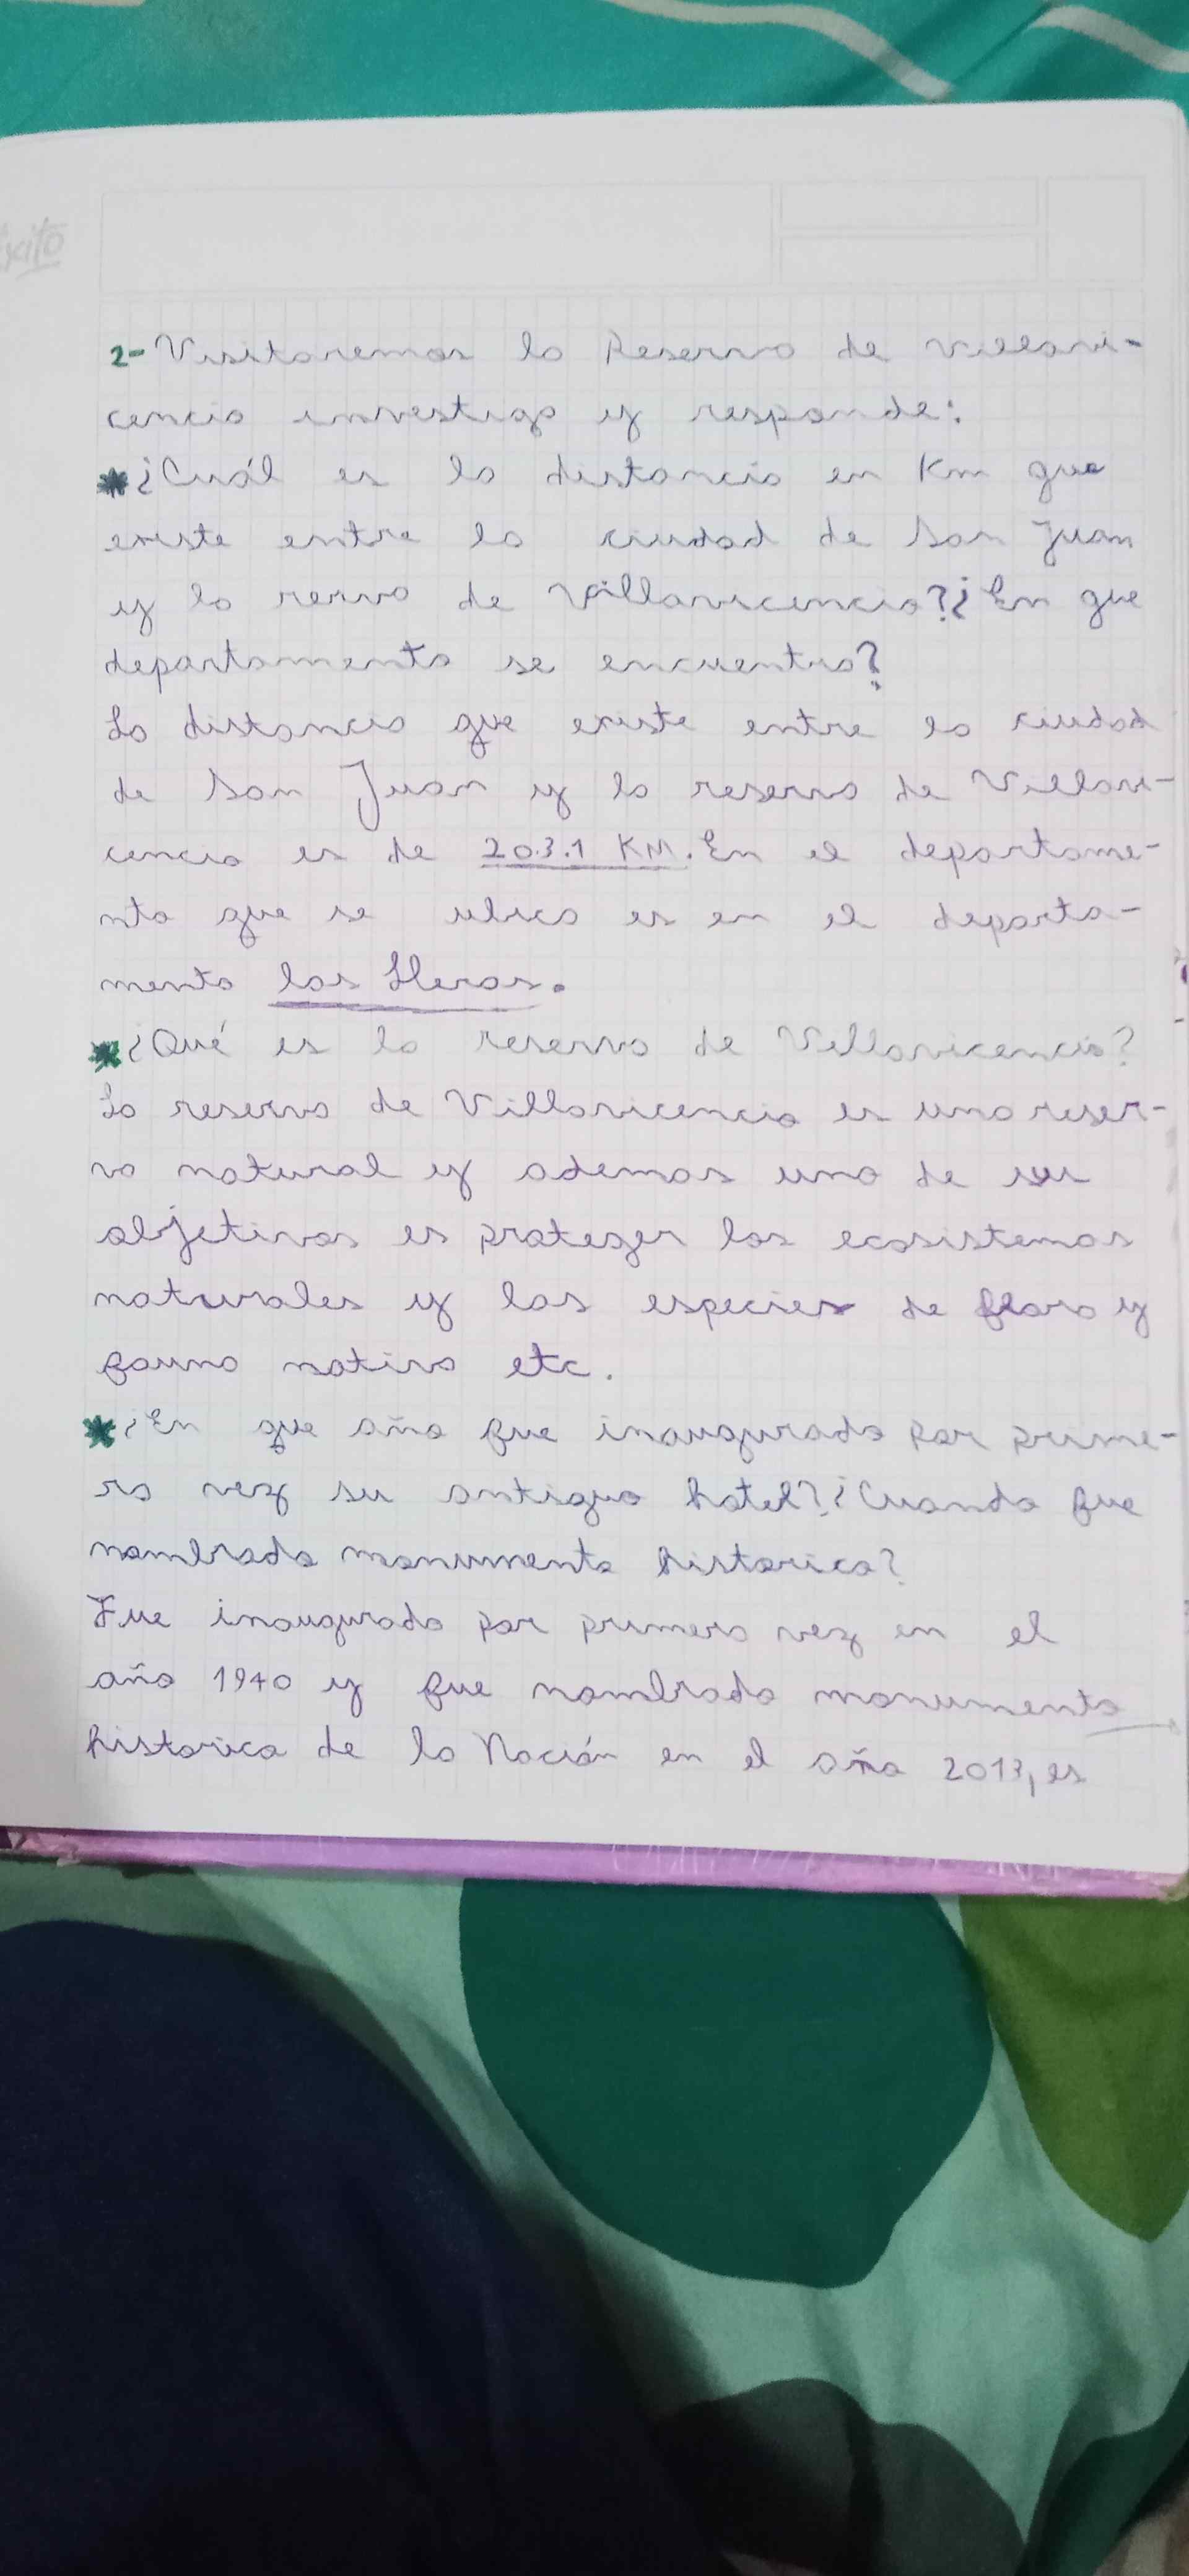 éxito
2- Visitaremos la Reserva de Villavi-
cencio investiga y responde:
*¿Cuál es la distancia en Km que
existe entre la ciudad de San Juan
y la rerva de Villavicencio?¿En que
departamento se encuentra?
La distancia que existe entre la ciudad
de San Juan y la reserva de Villavi-
cencio es de 203.1 KM. En el departame-
nto que se ubica es en el departa-
mento las Heras.
*¿Qué es la reserva de Villavicencio?
La reserva de Villavicencio es una reser-
va natural y ademas uno de sus
objetivos es proteger los ecosistemas
naturales y las especies de flora y
fauna nativa etc.
*¿En que año fue inaugurado por prime-
ra vez su antiguo hotel?¿Cuando fue
nombrado monumento historico?
Fue inaugurado por primera vez en el
año 1940 y fue nombrado monumento
historico de la Nación en el año 2013, es